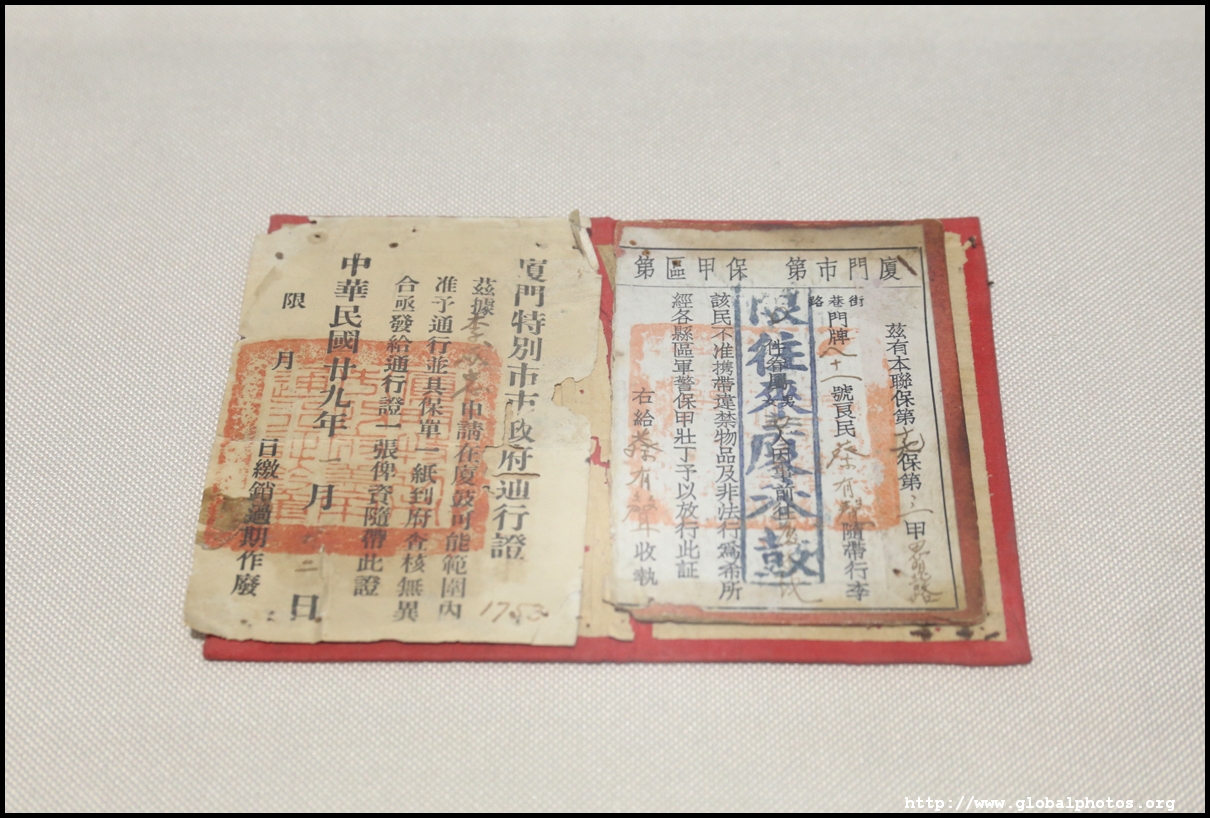 廈門市第 保甲區第
茲有本聯保第 保第 甲
街
巷
路
門牌八十一號良民蔡有聲隨帶行李
件眷屬 男 女 人因事前往
該民不准携帶違禁物品及非法行為希所
經各縣區軍警保甲壯丁予以放行此証
右給蔡有聲收執
限往來廈禾鼓
廈門特別市市政府通行證
茲據李 申請在廈鼓可能範圍內
准予通行並具保單一紙到府查核無異
合亟發給通行證一張俾資隨帶此證
中華民國廿九年 月 日
限 月 日繳銷過期作廢
1753
http://www.globalphotos.org